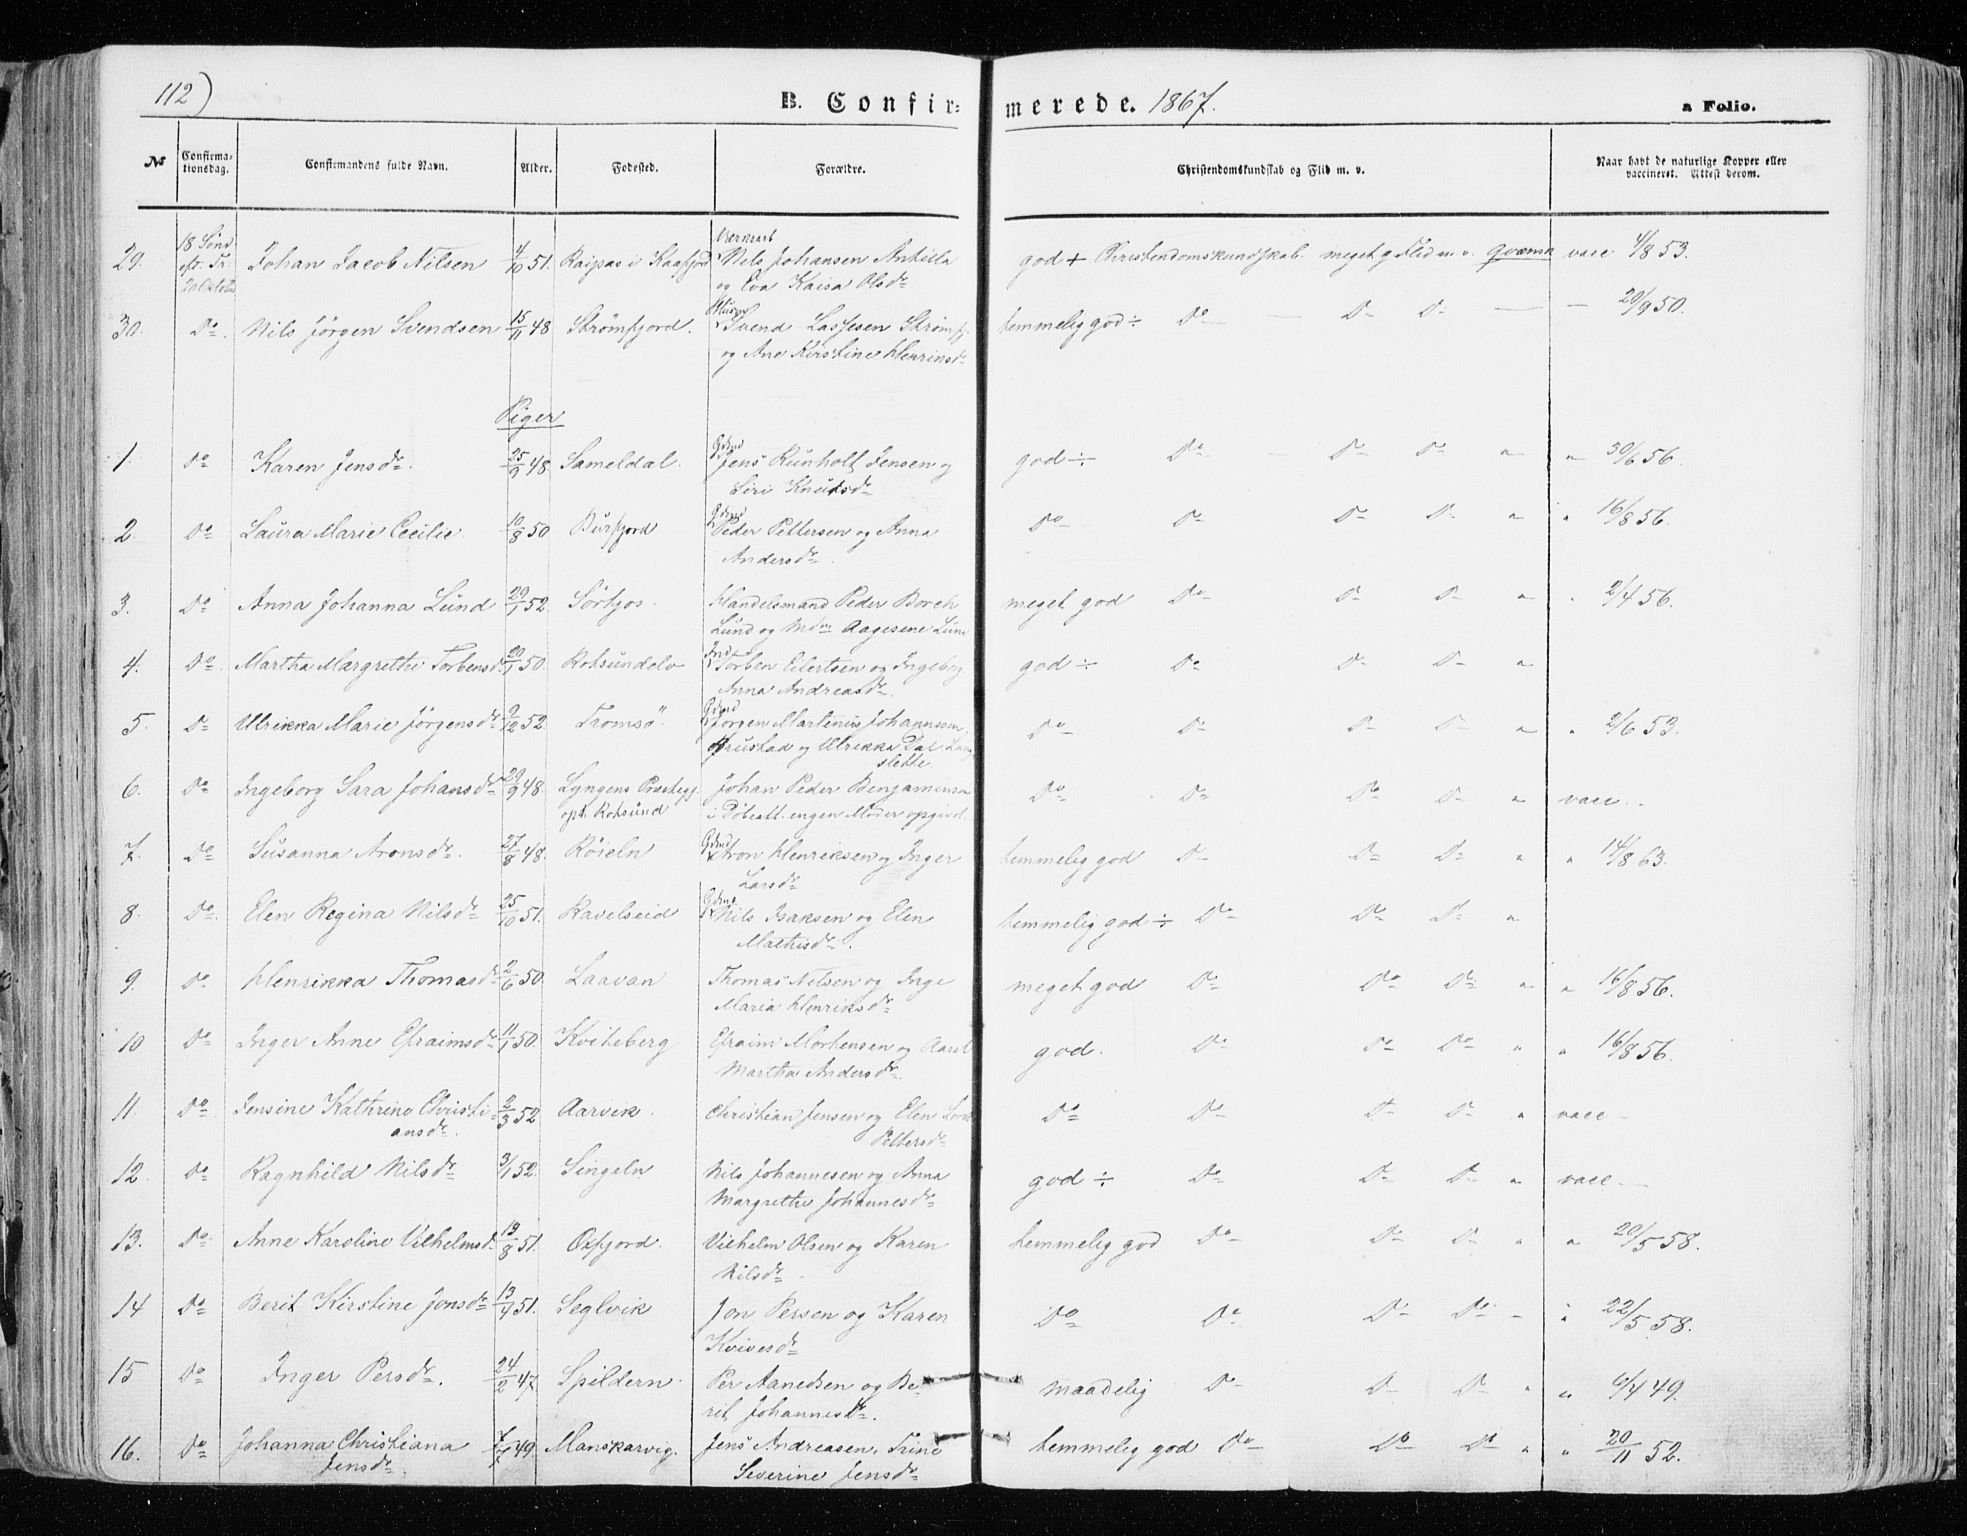 112)
B. Confir- merede. 1867. a Folio.
No Confirma-tionsdag. Confirmandens fulde Navn. Alder. Fodested. Forældre. Christendomskundskab og Flid m. v. Naar havt de naturlige Kopper eller vaccineret. Attest derom.
29. 18 Sønd. eft. Tr. Johan Jacob Nilsen 4/10 51. Raipas i Kaafjord Nils Johansen Ankilla god + Christendomskundskab. meget g. Flid m. v. qvænsk vacc 4/8 53.
og Eva Kaisa Olsdr
30. Do Nils Jörgen Svendsen 15/11 48 Strömfjord. Svend Lassesen Strømfj. temmelig god ÷ Do — Do Do — 20/9 50.
og Ane Kirstine Henriksdr
Piger
1. Do Karen Jensdr. 25/9 48. Sameldal. Gdmd Jens Runholt Jensen og god ÷ Do Do Do " " 30/6 56.
Siri Knutsdr
2. Do Laura Marie Cecilie. 10/8 50 Burfjord Gdmd Peder Pettersen og Anna Do Do Do Do " " 16/8 56.
Andersdr
3. Do Anna Johanna Lund 29/1 52. Sörkjos. Handelsmand Peder Borch meget god Do Do Do " " 2/4 56.
Lund og Mdm Aagesene Lund
4. Do Martha Margrethe Torbensdr 20/1 50. Rotsundelv Ind. Torben Eilertsen og Ingeborg god ÷ Do Do Do "
Anna Andreasdr
5. Do Ulrikka Marie Jörgensdr 9/12 52. Tromsö. Gdmd Jörgen Martinus Johannesen Do Do Do Do " " 2/6 53.
og Ulrikka Dal. Lang
slette.
6. Do Ingeborg Sara Johansdr 29/9 48. Lyngens Præstegj. Johan Peder Benjaminsen Do Do Do Do " vacc. -
opt. Rotsund i Döbeatt. ingen Moder opgivet.
7. Do Susanna Aronsdr. 27/8 48. Röieln Gdmd Aron Henriksen og Inger temmelig god Do Do Do " " 14/8 63.
Larsdr
8. Do Elen Regina Nilsdr 25/10 51. Ravelseid Gdmd Nils Isaksen og Elen temmelig god ÷ Do Do Do "
Mathisdr.
9. Do Henrikka Thomasdr 2/6 50. Laavan Thomas Nilsen og Inge meget god Do Do Do " " 16/8 56.
Maria Henriksdr
10 Do Inger Anne Efraimsdr 11/1 50. Kviteberg Efraim Mortensen og god. Do Do Do " " 16/8 56.
Martha Andersdr
11. Do Jensine Kathrine Christi- 2/3 52 Aarvik. Christian Jensen og Elen Do Do Do Do " vacc -
ansdr. Pettersdr
12. Do Ragnhild Nilsdr 3/1 52. Singeln Nils Johannesen og Anna god ÷ Do Do Do " vacc -
Margrethe Johannesdr
13. Do Anne Karoline Vilhelmsdr 19/8 51. Oxfjord. Vilhelm Olsen og Karen temmelig god Do Do Do " " 20/5 58.
Nilsdr
14 Do Berit Kirstine Jonsdr 13/7 51. Seglvik Jon Persen og Karen Do Do Do Do - " 22/5 58.
Kvivesdr
15 Do Inger Persdr. 24/2 47. Spildern Per Aanedsen og Be- maadelig Do Do Do " " 6/4 49.
rit Johannesdr.
16. Do Johanna Christiana 7/7 49. Manskarvig. Jens Andreasen, Trine temmelig god Do Do Do " " 20/11 52.
Jensdr. Severine Jensdr